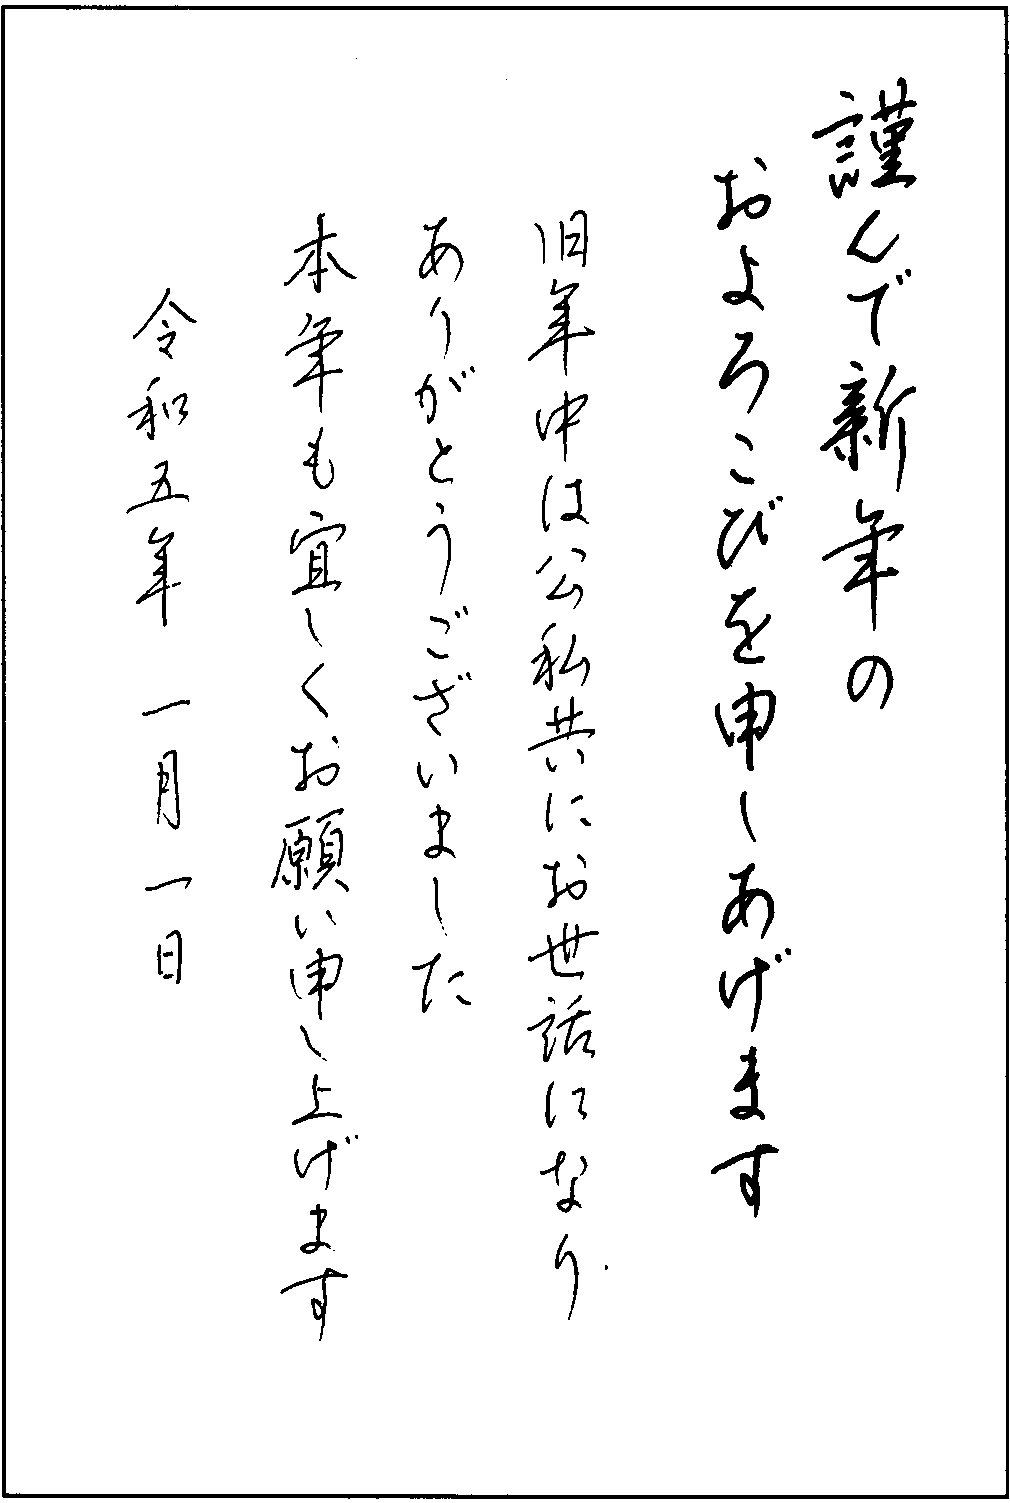 謹んで新年の
およろこびを申しあげます
旧年中は公私共にお世話になり
ありがとうございました
本年も宜しくお願い申し上げます
令和五年 一月一日